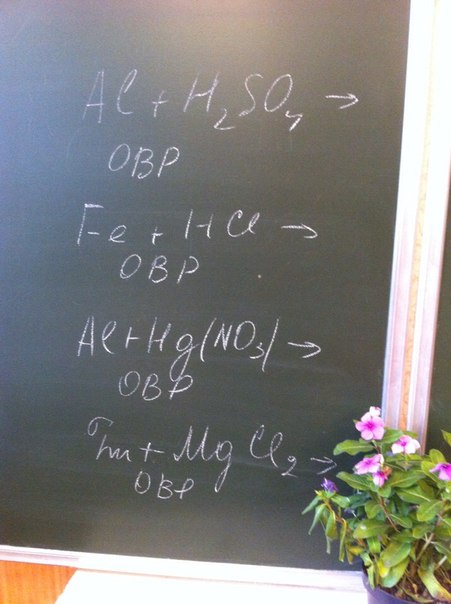 Al + H₂SO₄ →
ОВР
Fe + HCl →
ОВР
Al + Hg(NO₃) →
ОВР
+ MgCl₂ →
ОВР